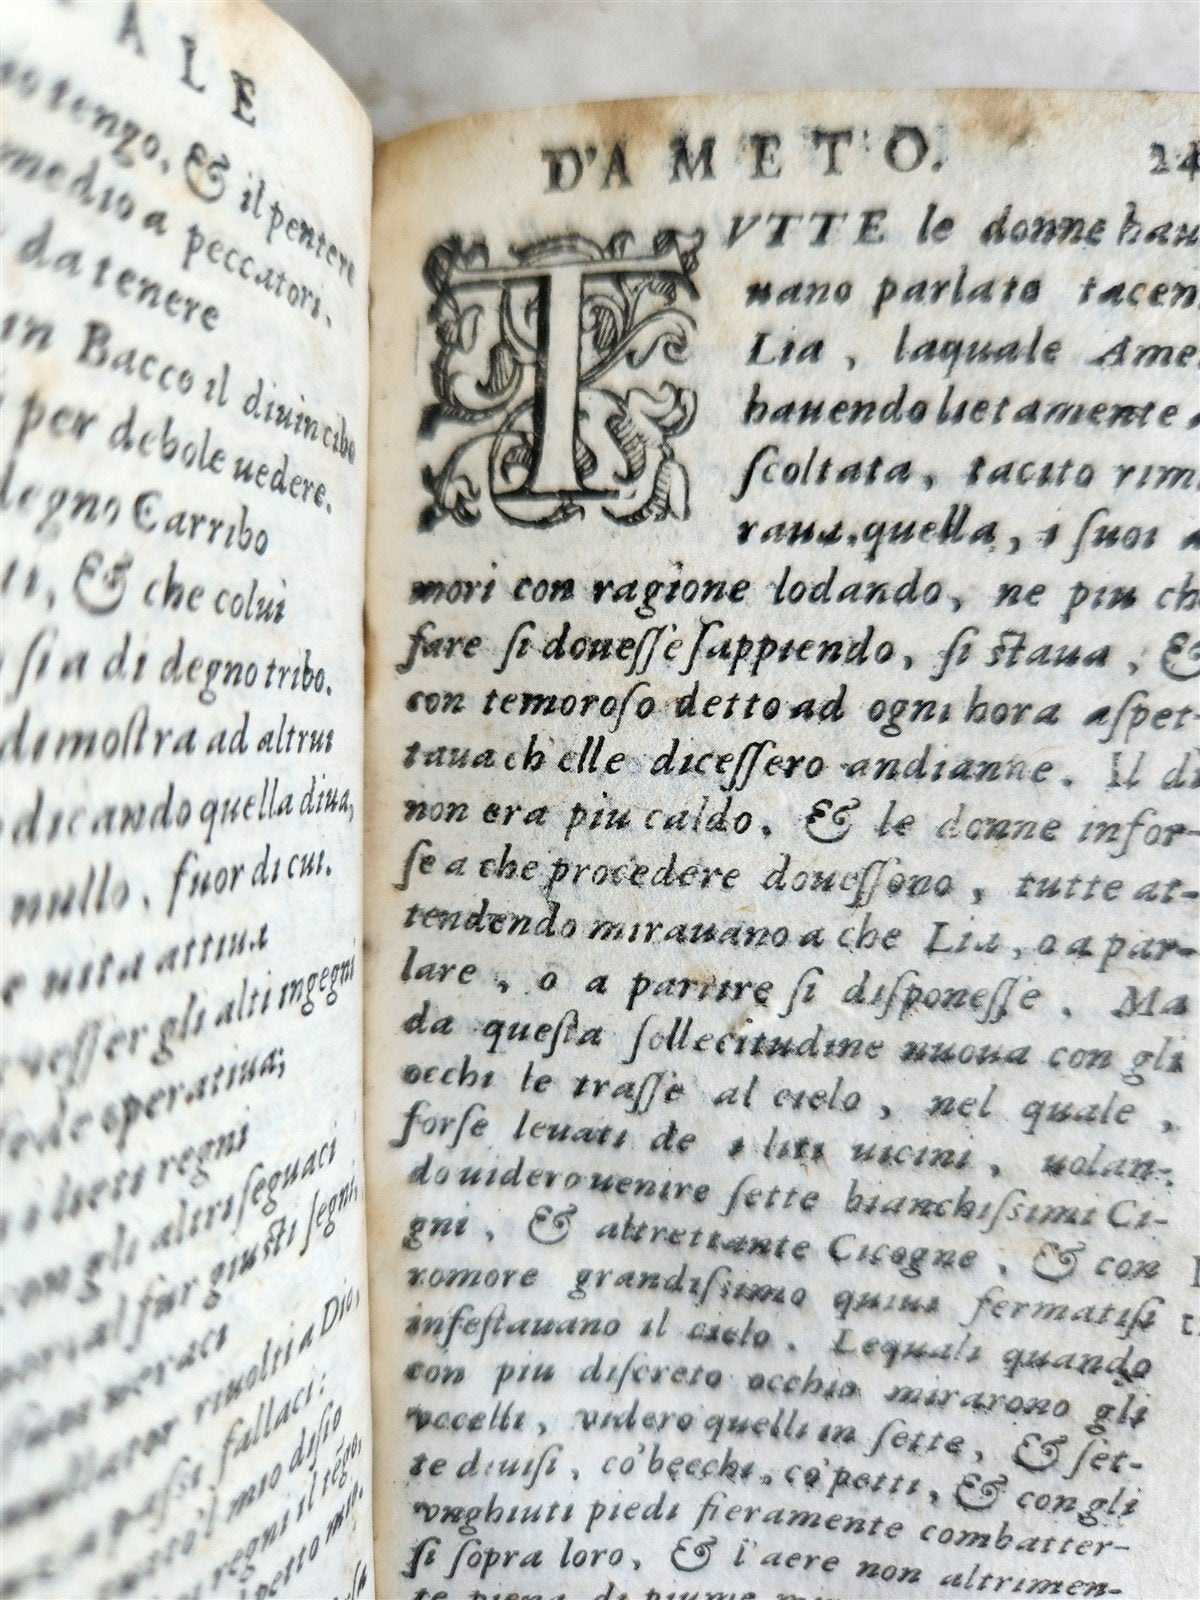 ALE
tenzo, & il pentere
medio a peccatori.
da tenere
in Bacco il diuin cibo
per debole uedere.
degno Carribo
& che colui
sia di degno tribo.
dimostra ad altrui
dicando quella diua,
nullo, fuor di cui.
uita attiua
gli alti ingegni
fede operatiua;
lieti regni
con gli altri seguaci
fur giusti segni,
ueraci
riuolti a Dio,
passi fallaci:
mio disio
regni il
petto mio.
D'AMETO. 24
TVTTE le donne hau
uano parlato tacen
Lia, laquale Ame
hauendo lietamente
scoltata, tacito rimi
raua.quella, i suoi a
mori con ragione lodando, ne piu ch
fare si douesse sappiendo, si staua, &
con temoroso detto ad ogni hora aspet-
taua ch'elle dicessero andianne. Il di
non era piu caldo, & le donne infor-
se a che procedere douessono, tutte at-
tendendo mirauano a che Lia, o a par-
lare, o a partire si disponesse. Ma
da questa sollecitudine nuoua con gli
occhi le trasse al cielo, nel quale,
forse leuati de i liti uicini, uolan-
do uidero uenire sette bianchissimi Ci-
gni, & altrettante Cicogne, & con
romore grandissimo quiui fermatisi
infestauano il cielo. Lequali quando
con piu discreto occhio mirarono gli
vccelli, videro quelli in sette, & set-
te diuisi, co'becchi, co'petti, & con gli
vnghiuti piedi fieramente combatter-
si sopra loro, & l'aere non altrimen-
te piena di piume